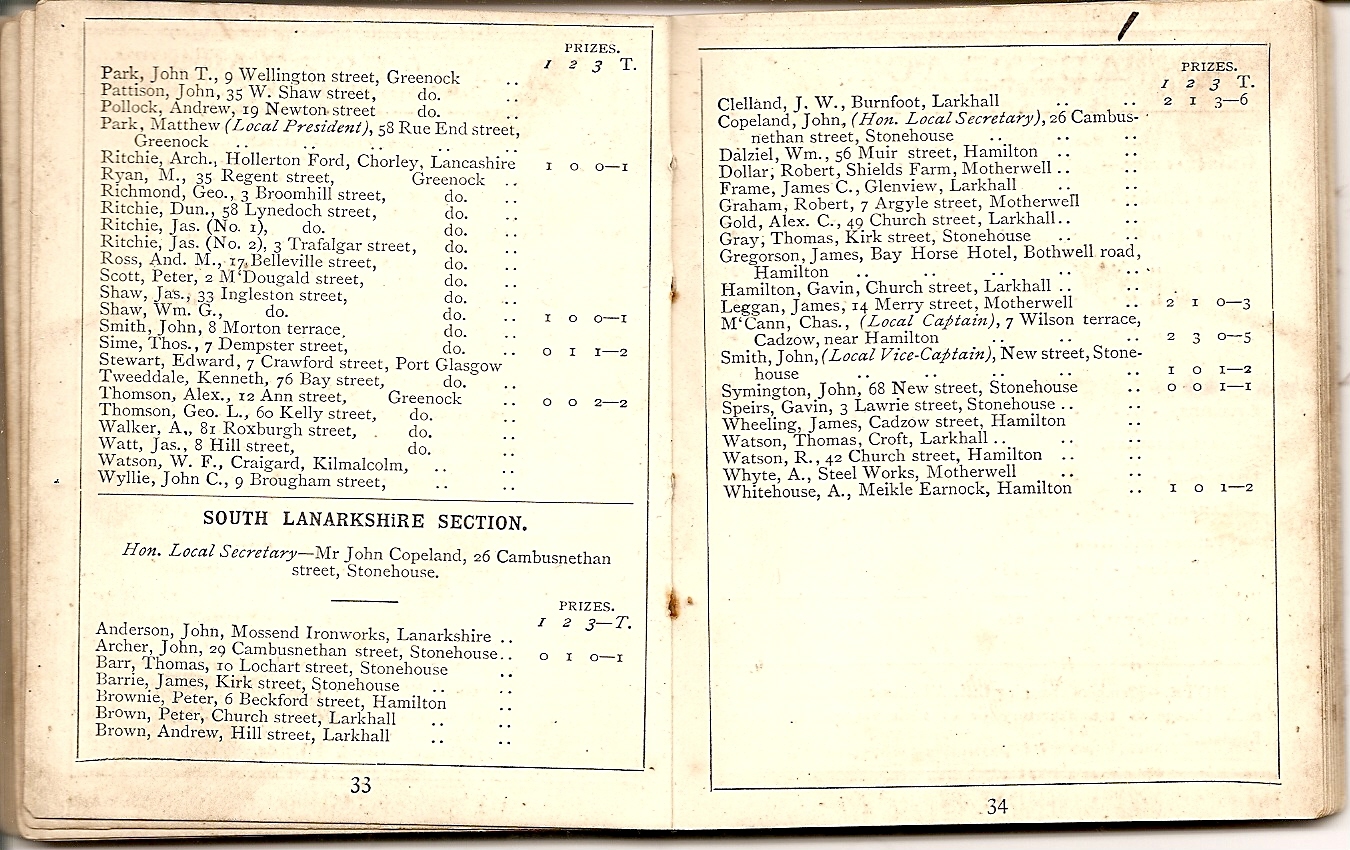 PRIZES.
1 2 3 T.
Park, John T., 9 Wellington street, Greenock ..
Pattison, John, 35 W. Shaw street, do. ..
Pollock, Andrew, 19 Newton street do. ..
Park, Matthew (Local President), 58 Rue End street,
Greenock .. .. .. .. ..
Ritchie, Arch., Hollerton Ford, Chorley, Lancashire 1 0 0—1
Ryan, M., 35 Regent street, Greenock ..
Richmond, Geo., 3 Broomhill street, do. ..
Ritchie, Dun., 58 Lynedoch street, do. ..
Ritchie, Jas. (No. 1), do. do. ..
Ritchie, Jas. (No. 2), 3 Trafalgar street, do. ..
Ross, And. M., 17 Belleville street, do. ..
Scott, Peter, 2 M'Dougald street, do. ..
Shaw, Jas., 33 Ingleston street, do. ..
Shaw, Wm. G., do. do. .. 1 0 0—1
Smith, John, 8 Morton terrace, do. ..
Sime, Thos., 7 Dempster street, do. .. 0 1 1—2
Stewart, Edward, 7 Crawford street, Port Glasgow
Tweeddale, Kenneth, 76 Bay street, do. ..
Thomson, Alex., 12 Ann street, Greenock .. 0 0 2—2
Thomson, Geo. L., 60 Kelly street, do. ..
Walker, A., 81 Roxburgh street, do. ..
Watt, Jas., 8 Hill street, do. ..
Watson, W. F., Craigard, Kilmalcolm, .. ..
Wyllie, John C., 9 Brougham street, .. ..
SOUTH LANARKSHiRE SECTION.
Hon. Local Secretary—Mr John Copeland, 26 Cambusnethan
street, Stonehouse.
PRIZES.
1 2 3—T.
Anderson, John, Mossend Ironworks, Lanarkshire ..
Archer, John, 29 Cambusnethan street, Stonehouse.. 0 1 0—1
Barr, Thomas, 10 Lochart street, Stonehouse ..
Barrie, James, Kirk street, Stonehouse .. ..
Brownie, Peter, 6 Beckford street, Hamilton ..
Brown, Peter, Church street, Larkhall .. ..
Brown, Andrew, Hill street, Larkhall .. ..
33
PRIZES.
1 2 3 T.
Clelland, J. W., Burnfoot, Larkhall .. .. 2 1 3—6
Copeland, John, (Hon. Local Secretary), 26 Cambus-
nethan street, Stonehouse .. .. ..
Dalziel, Wm., 56 Muir street, Hamilton .. ..
Dollar, Robert, Shields Farm, Motherwell .. ..
Frame, James C., Glenview, Larkhall .. ..
Graham, Robert, 7 Argyle street, Motherwell ..
Gold, Alex. C., 49 Church street, Larkhall.. ..
Gray, Thomas, Kirk street, Stonehouse .. ..
Gregorson, James, Bay Horse Hotel, Bothwell road,
Hamilton .. .. .. .. ..
Hamilton, Gavin, Church street, Larkhall .. ..
Leggan, James, 14 Merry street, Motherwell .. 2 1 0—3
M'Cann, Chas., (Local Captain), 7 Wilson terrace,
Cadzow, near Hamilton .. .. .. 2 3 0—5
Smith, John, (Local Vice-Captain), New street, Stone-
house .. .. .. .. .. 1 0 1—2
Symington, John, 68 New street, Stonehouse .. 0 0 1—1
Speirs, Gavin, 3 Lawrie street, Stonehouse .. ..
Wheeling, James, Cadzow street, Hamilton ..
Watson, Thomas, Croft, Larkhall .. .. ..
Watson, R., 42 Church street, Hamilton .. ..
Whyte, A., Steel Works, Motherwell .. ..
Whitehouse, A., Meikle Earnock, Hamilton .. 1 0 1—2
34